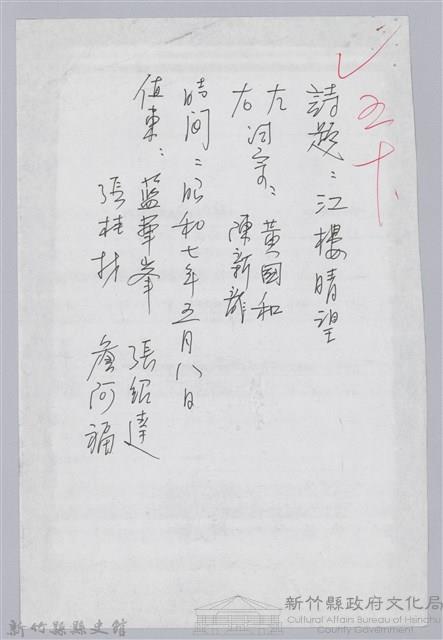 五十
詩題:江樓晴望
左詞宗:黃國和
右 陳新龍
時间:昭和七年五月八日
值東:藍華峯 張紹達
張桂材 詹阿福
新竹縣縣史館
新竹縣政府文化局
Cultural Affairs Bureau of Hsinchu
County Government